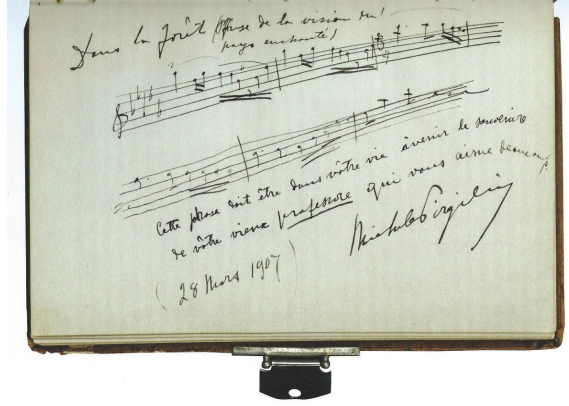 Dans la forêt (Phrase de la vision du
pays enchanté)
Cette phrase doit être dans vôtre vie àvenir le souvenire
de vôtre vieux professore qui vous aime beaucoup.
(28 Mars 1907)